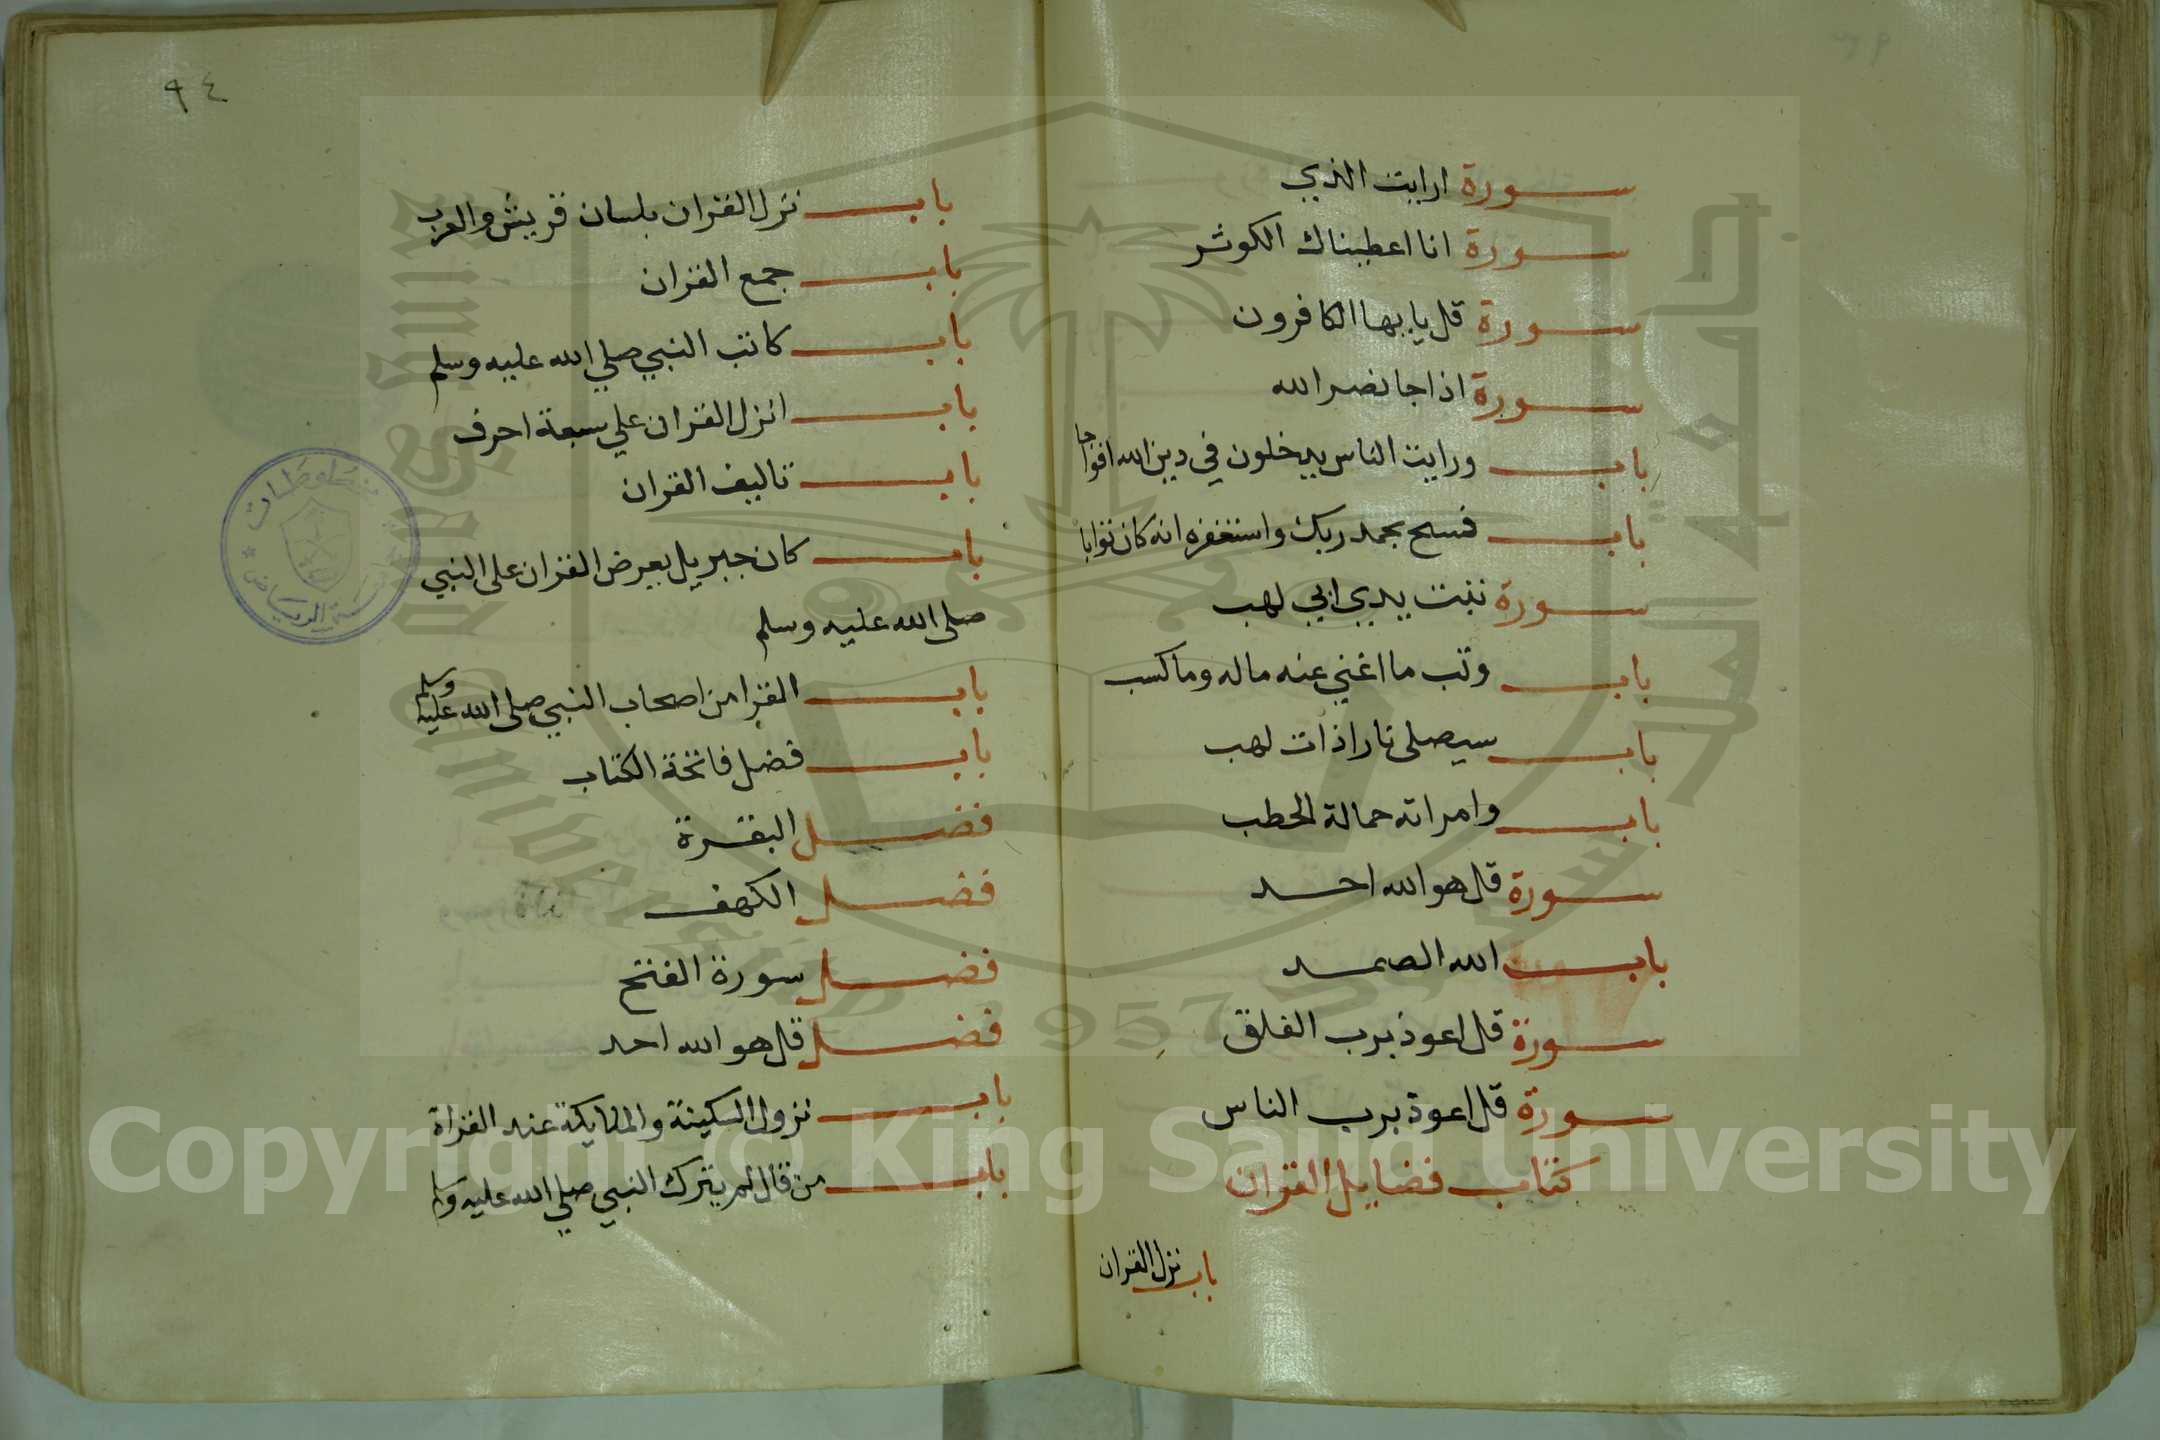 سورة ارايت الذي
سورة انا اعطيناك الكوثر
سورة قل يا يها الكافرون
سورة اذا جا نصر الله
باب ورايت الناس يدخلون في دين الله افواجا
باب فسبح بحمد ربك واستغفره انه كان توابا
سورة تبت يدي ابي لهب
باب وتب ما اغني عنه ماله وما كسب
باب سيصلى نارا ذات لهب
باب وامراته حمالة الحطب
سورة قل هو الله احد
باب الله الصمد
سورة قل اعوذ برب الفلق
سورة قل اعوذ برب الناس
كتاب فضايل القران
باب نزل القران
٩٤
باب نزل القران بلسان قريش والعرب
باب جمع القران
باب كاتب النبي صلي الله عليه وسلم
باب انزل القران علي سبعة احرف
باب تاليف القران
باب كان جبريل يعرض القران على النبي
صلى الله عليه وسلم
باب القرا من اصحاب النبي صلى الله عليه وسلم
باب فضل فاتحة الكتاب
فضل البقرة
فضل الكهف
فضل سورة الفتح
فضل قل هو الله احد
باب نزول السكينة والملايكة عند القراة
باب من قال لم يترك النبي صلي الله عليه وسلم
مخطوطات
الرياض
King Saud University
1957
Copyright © King Saud University